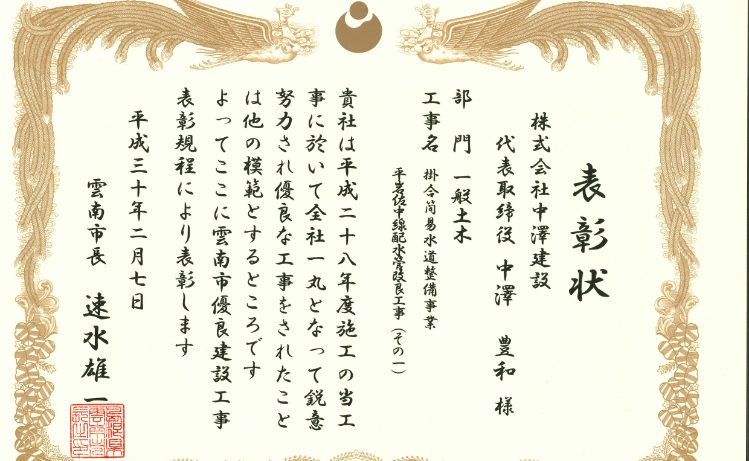 表彰状
株式会社中澤建設
代表取締役 中澤 豊和 様
部門 一般土木
工事名 掛合簡易水道整備事業
平岩佐中線配水管改良工事(その一)
貴社は平成二十八年度施工の当工
事に於いて全社一丸となって鋭意
努力され優良な工事をされたこと
は他の模範とするところです
よってここに雲南市優良建設工事
表彰規程により表彰します
平成三十年二月七日
雲南市長 速水雄一